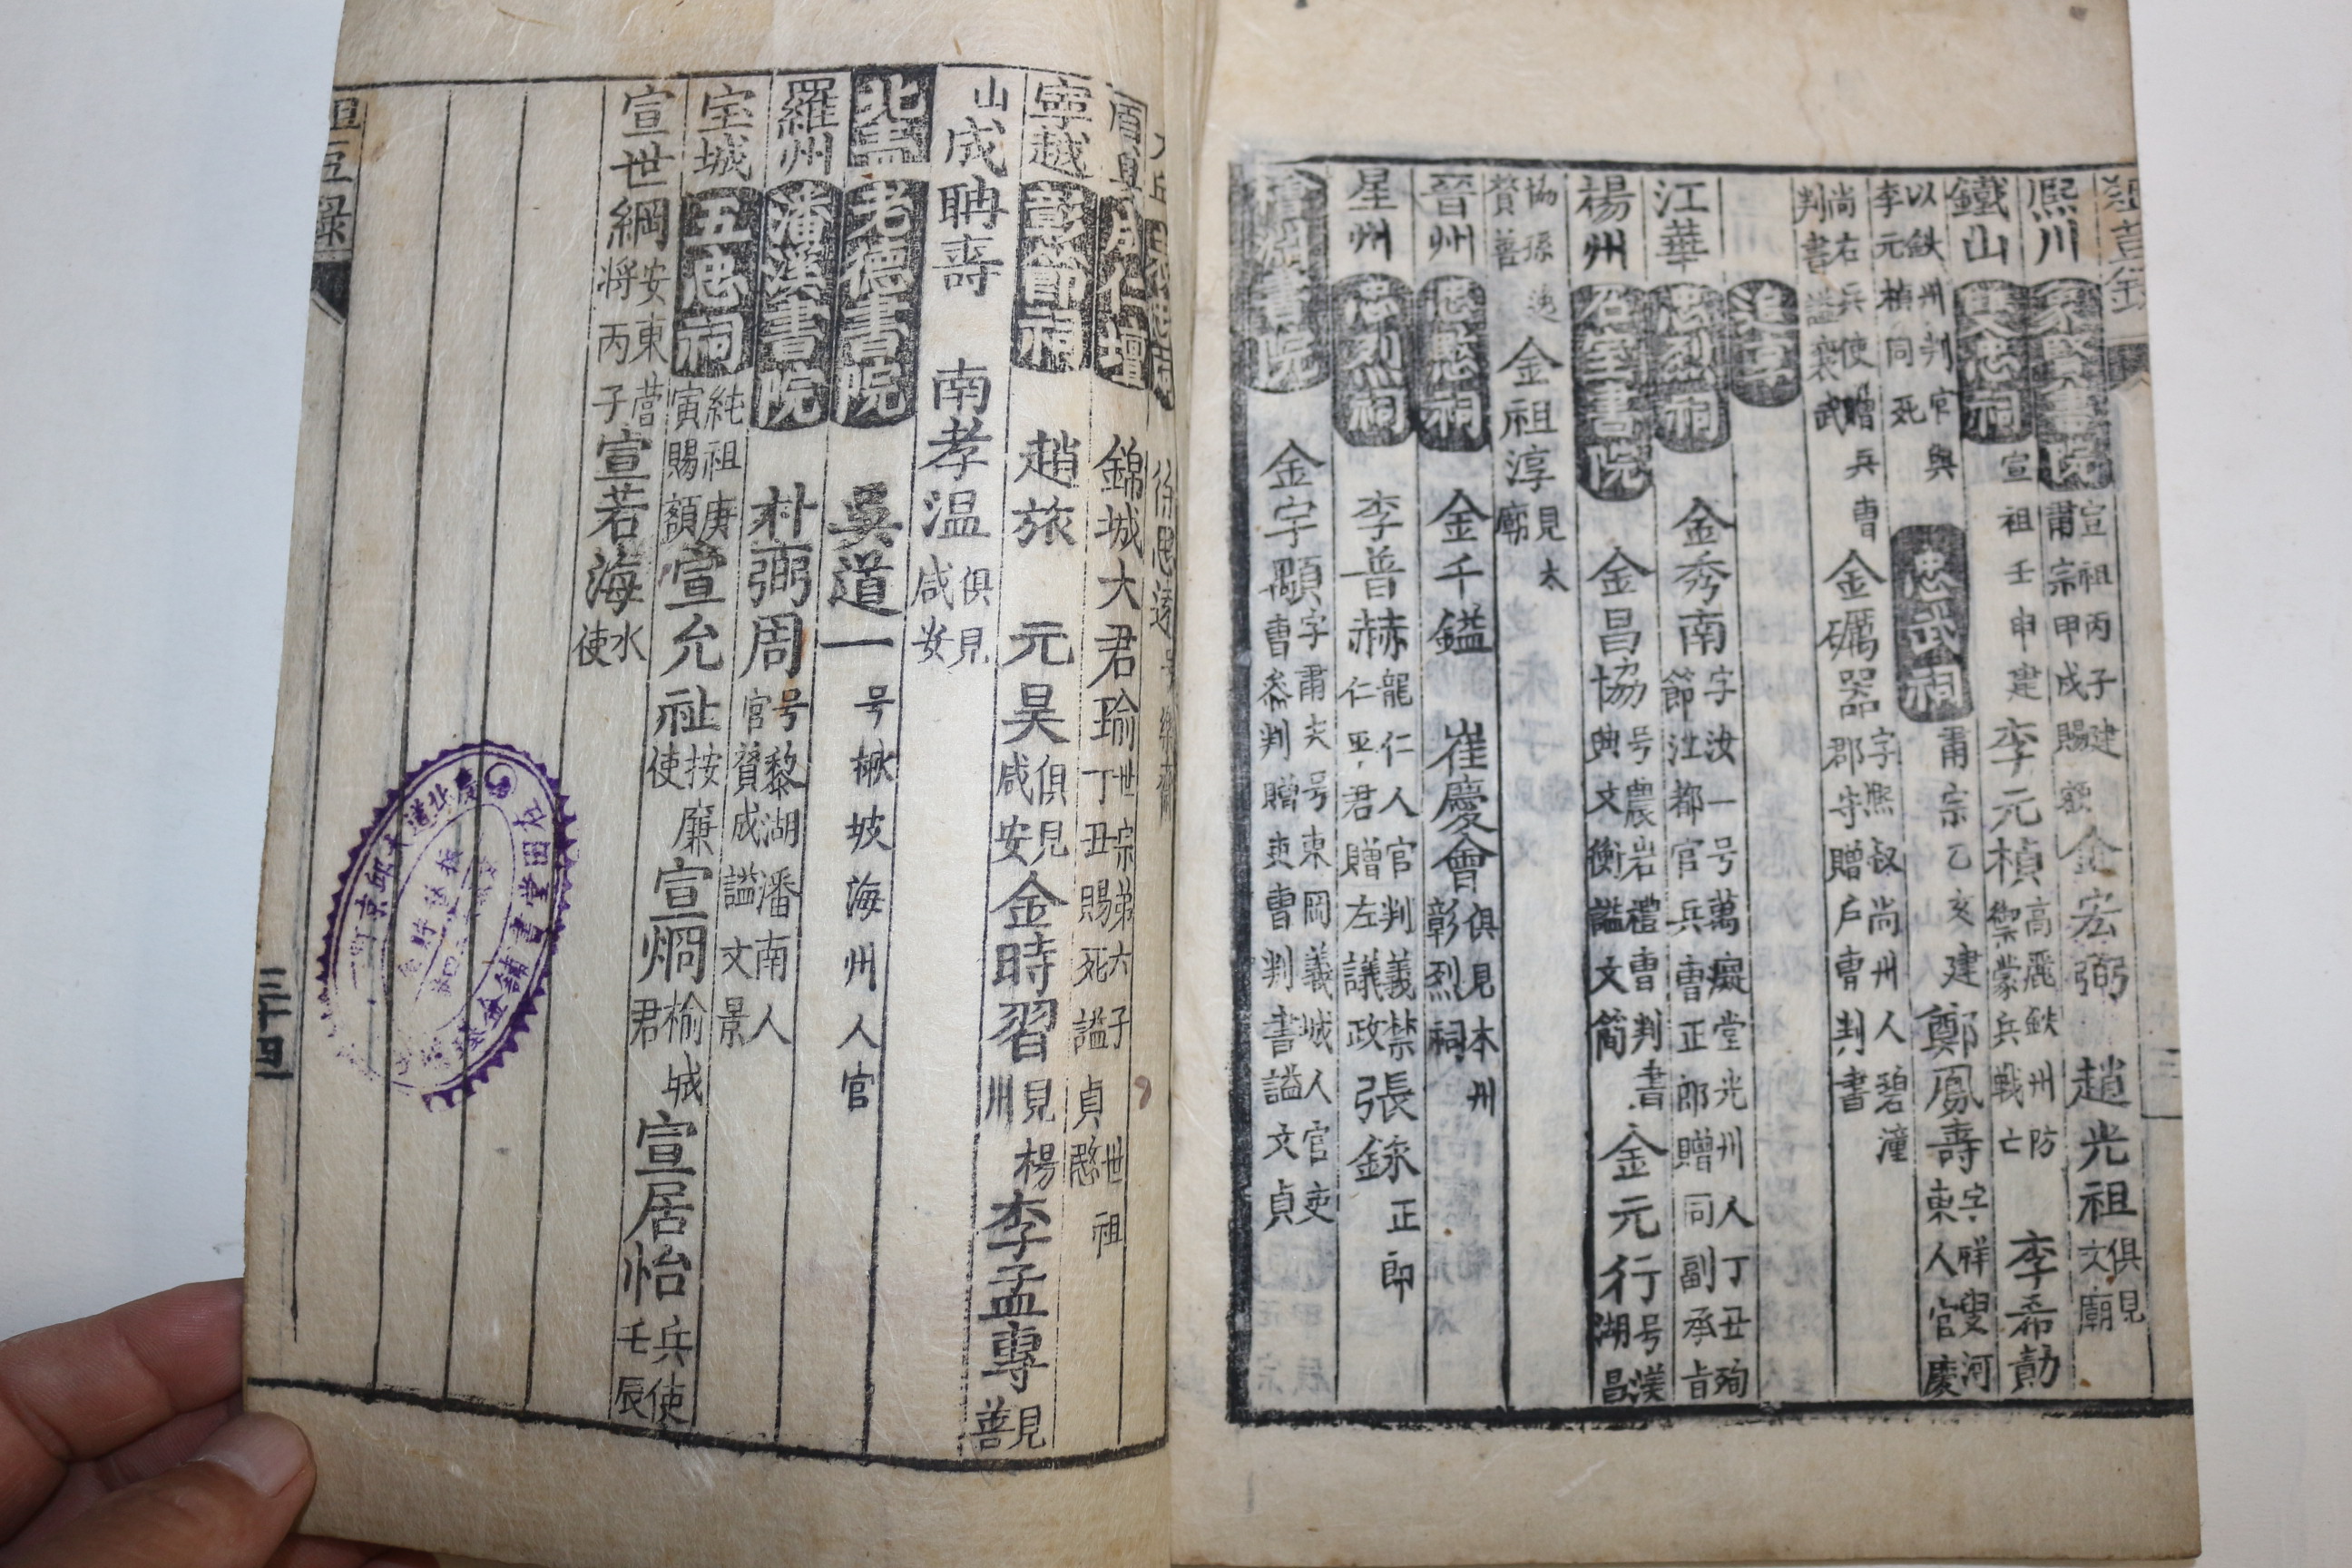 熙川 象賢書院 宣祖丙子建 肅宗甲戍賜額 金宏弼 趙光祖 俱見文廟
鐵山 雙忠祠 宣祖壬申建 李元楨 高麗鉄州防禦蒙兵戰亡 李希勣
以鉄州判官與李元楨同死 忠武祠 肅宗乙亥建 鄭鳳壽 字祥叟河東人官慶
尚右兵使贈兵曹判書謚襄武 金礪器 字熙叔尚州人碧潼郡守贈戶曹判書
追享
江華 忠烈祠 金秀南 字汝一号萬癡堂光州人丁丑殉節江都官兵曹正郎贈同副承旨
楊州 石室書院 金昌協 号農岩禮曹判書典文衡謚文簡 金元行 号渼湖昌
協孫進贊善 金祖淳 見太廟
晉州 忠愍祠 金千鎰 崔慶會 俱見本州彰烈祠
星州 忠烈祠 李普赫 龍仁人官判義禁仁平君贈左議政 張錄 正郎
書院 金宇顒 字肅夫号東岡義城人官吏曹參判贈吏曹判書謚文貞
成仁壇 錦城大君瑜 世宗弟六子世祖丁丑賜死謚貞愍
寧越 彰節祠 趙旅 元昊 俱見咸安 金時習 見楊川 李孟專 見善
山 成聃壽 南孝温 俱見咸安
老德書院 吳道一 号楸坡海州人官
羅州 潘溪書院 朴弼周 号黎湖潘南人官贊成謚文景
宝城 五忠祠 純祖庚寅賜額 宣允祉 按廉使 宣炯 楡城君 宣居怡 兵使壬辰
宣世綱 安東營將丙子 宣若海 水使
三十四